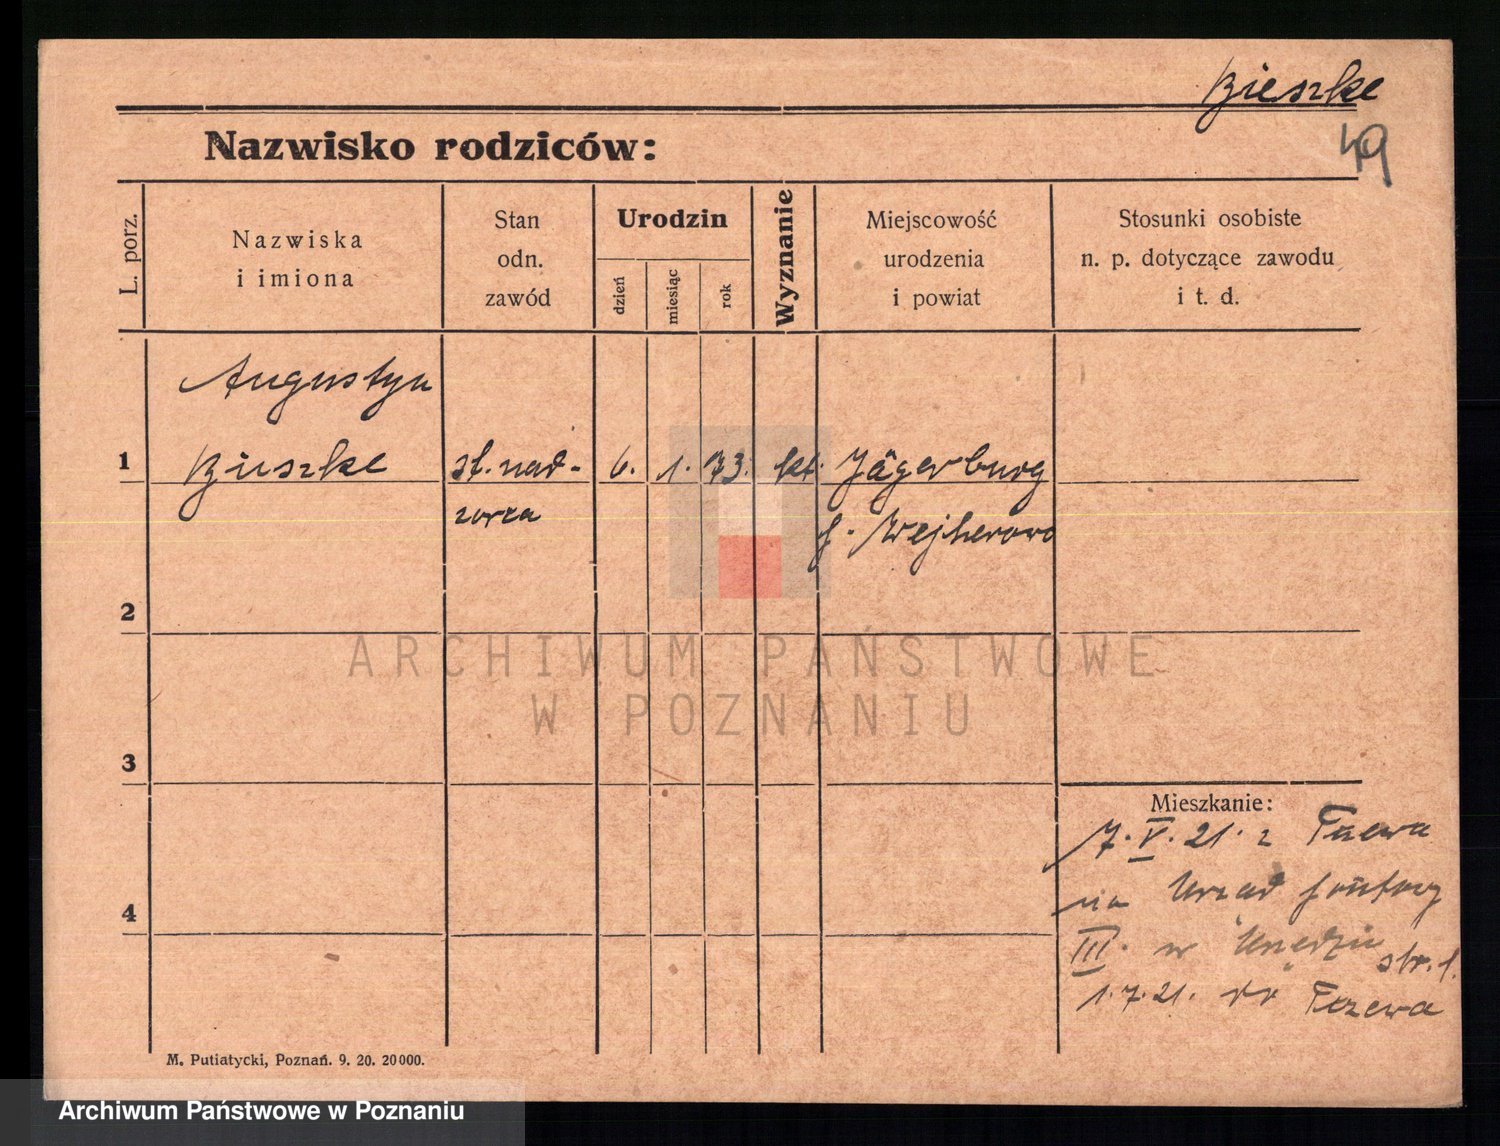 Bieszke
49
Nazwisko rodziców:
L. porz.
Nazwiska
i imiona
Stan
odn.
zawód
Urodzin
dzień
miesiąc
rok
Wyznanie
Miejscowość
urodzenia
i powiat
Stosunki osobiste
n. p. dotyczące zawodu
i t. d.
Augustyn
1 Bieszke st. nad- 6. 1. 73. kt. Jägerburg
zorca p. Wejherowo
2
ARCHIWUM PAŃSTWOWE
W POZNANIU
3
Mieszkanie:
7. V. 21. z Tczewa
na Urząd
4
III. w str. 1.
1.7.21. do Tczewa
M. Putiatycki, Poznań. 9. 20. 20000.
Archiwum Państwowe w Poznaniu